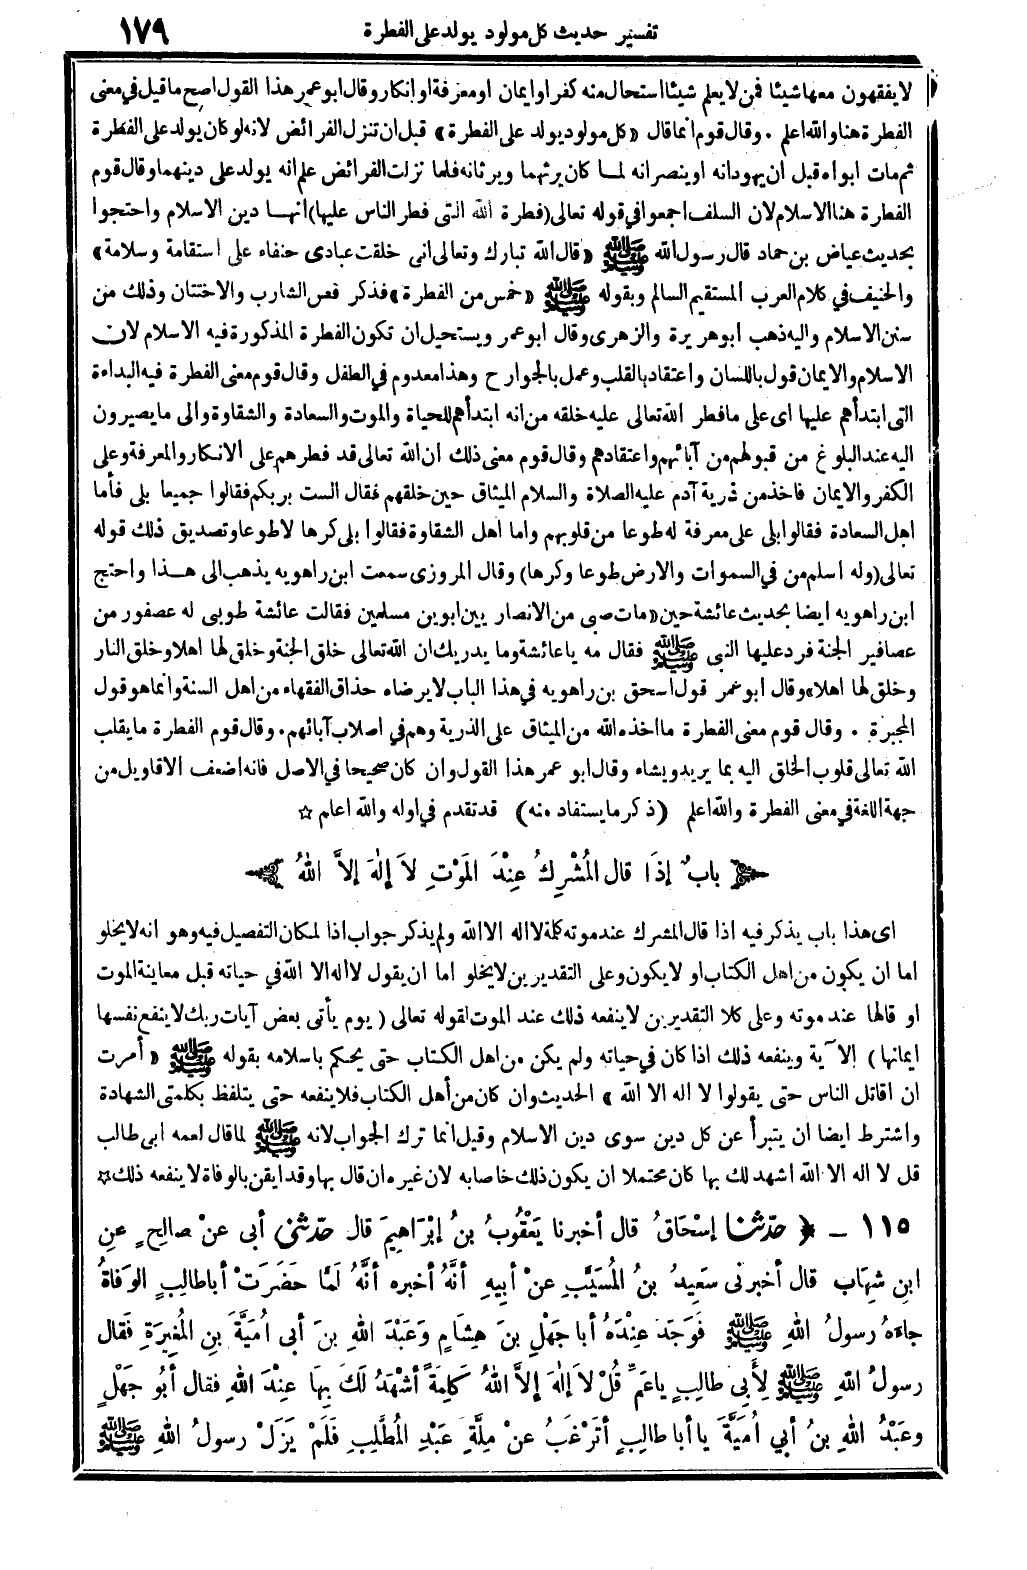 تفسير حديث كل مولود يولد على الفطرة
١٧٩
لا يفقهون معها شيئا فمن لا يعلم شيئا استحال منه كفر او ايمان او معرفة او انكار وقال ابو عمر هذا القول اصح ما قيل في معنى
الفطرة هنا والله اعلم . وقال قوم انما قال «كل مولود يولد على الفطرة» قبل ان تنزل الفرائض لانه لو كان يولد على الفطرة
ثم مات ابواه قبل ان يهودانه او ينصرانه لمـا كان يرثهما ويرثانه فلما نزلت الفرائض علم انه يولد على دينهما وقال قوم
الفطرة هنا الاسلام لان السلف اجمعوا في قوله تعالى (فطرة الله التى فطر الناس عليها) انهـا دين الاسلام واحتجوا
بحديث عياض بن حماد قال رسول الله ﷺ «قال الله تبارك وتعالى انى خلقت عبادى حنفاء على استقامة وسلامة»
والحنيف في كلام العرب المستقيم السالم وبقوله ﷺ «خمس من الفطرة» فذكر قص الشارب والاختتان وذلك من
سنن الاسلام واليه ذهب ابو هريرة والزهرى وقال ابو عمر ويستحيل ان تكون الفطرة المذكورة فيه الاسلام لان
الاسلام والايمان قول باللسان واعتقاد بالقلب وعمل بالجوارح وهذا معدوم في الطفل وقال قوم معنى الفطرة فيه البداءة
التى ابتدأهم عليها اى على ما فطر الله تعالى عليه خلقه من انه ابتدأهم للحياة والموت والسعادة والشقاوة والى ما يصيرون
اليه عند البلوغ من قبولهم من آبائهم واعتقادهم وقال قوم معنى ذلك ان الله تعالى قد فطرهم على الانكار والمعرفة وعلى
الكفر والايمان فاخذ من ذرية آدم عليه الصلاة والسلام الميثاق حين خلقهم فقال الست بربكم فقالوا جميعا بلى فأما
اهل السعادة فقالوا بلى على معرفة له طوعا من قلوبهم واما اهل الشقاوة فقالوا بلى كرها لا طوعا وتصديق ذلك قوله
تعالى (وله اسلم من في السموات والارض طوعا وكرها) وقال المروزى سمعت ابن راهويه يذهب الى هـذا واحتج
ابن راهويه ايضا بحديث عائشة حين «مات صبى من الانصار بين ابوين مسلمين فقالت عائشة طوبى له عصفور من
عصافير الجنة فرد عليها النبى ﷺ فقال مه يا عائشة وما يدريك ان الله تعالى خلق الجنة وخلق لها اهلا وخلق النار
وخلق لها اهلا» وقال ابو عمر قول اسحق بن راهويه في هذا الباب لا يرضاه حذاق الفقهاء من اهل السنة وانما هو قول
المجبرة . وقال قوم معنى الفطرة ما اخذه الله من الميثاق على الذرية وهم في اصلاب آبائهم . وقال قوم الفطرة ما يقلب
الله تعالى قلوب الخلق اليه بما يريد ويشاء وقال ابو عمر هذا القول وان كان صحيحا في الاصل فانه اضعف الاقاويل من
جهة اللغة في معنى الفطرة والله اعلم (ذكر ما يستفاد منه) قد تقدم في اوله والله اعلم ☆
﴿ بابٌ إذَا قال المُشْرِكُ عِنْدَ المَوْتِ لاَ إلٰهَ إلاَّ اللهُ ﴾
اى هذا باب يذكر فيه اذا قال المشرك عند موته كلمة لا اله الا الله ولم يذكر جواب اذا لمكان التفصيل فيه وهو انه لا يخلو
اما ان يكون من اهل الكتاب او لا يكون وعلى التقديرين لا يخلو اما ان يقول لا اله الا الله في حياته قبل معاينة الموت
او قالها عند موته وعلى كلا التقديرين لا ينفعه ذلك عند الموت لقوله تعالى ( يوم يأتى بعض آيات ربك لا ينفع نفسها
ايمانها ) الآية وينفعه ذلك اذا كان في حياته ولم يكن من اهل الكتاب حتى يحكم باسلامه بقوله ﷺ « أمرت
ان اقاتل الناس حتى يقولوا لا اله الا الله » الحديث وان كان من أهل الكتاب فلا ينفعه حتى يتلفظ بكلمتى الشهادة
واشترط ايضا ان يتبرأ عن كل دين سوى دين الاسلام وقيل انما ترك الجواب لانه ﷺ لما قال لعمه ابى طالب
قل لا اله الا الله اشهد لك بها كان محتملا ان يكون ذلك خاصا به لان غيره ان قال بها وقد ايقن بالوفاة لا ينفعه ذلك ☆
١١٥ ـ ﴿ حدّثنا إسْحَاقُ قال أخبرنا يَعْقُوبُ بنُ إبْرَاهِيمَ قال حدّثنى أبى عنْ صالِحٍ عنِ
ابنِ شِهَاب قال أخبرنى سَعِيدُ بنُ المُسَيَّبِ عنْ أبِيهِ أنَّهُ أخبره أنَّهُ لَمَّا حَضَرَتْ أباطالِبٍ الوَفاةُ
جاءَهُ رسولُ اللهِ ﷺ فَوَجَدَ عِنْدَهُ أبا جَهْلِ بنَ هِشَامٍ وَعَبْدَ اللهِ بنَ أبى أُمَيَّةَ بنِ المُغِيرَةِ فَقال
رسولُ اللهِ ﷺ لِأَبِى طالِبٍ ياعَمِّ قُلْ لاَ إلٰهَ إلاَّ اللهُ كَلِمَةً أشْهَدُ لَكَ بِهَا عِنْدَ اللهِ فقال أبُو جَهْلٍ
وعَبْدُ اللهِ بنُ أبي أُمَيَّةَ يا أبا طالِبٍ أتَرْغَبُ عنْ مِلَّةِ عَبْدِ المُطَّلِبِ فَلَمْ يَزَلْ رسولُ اللهِ ﷺ